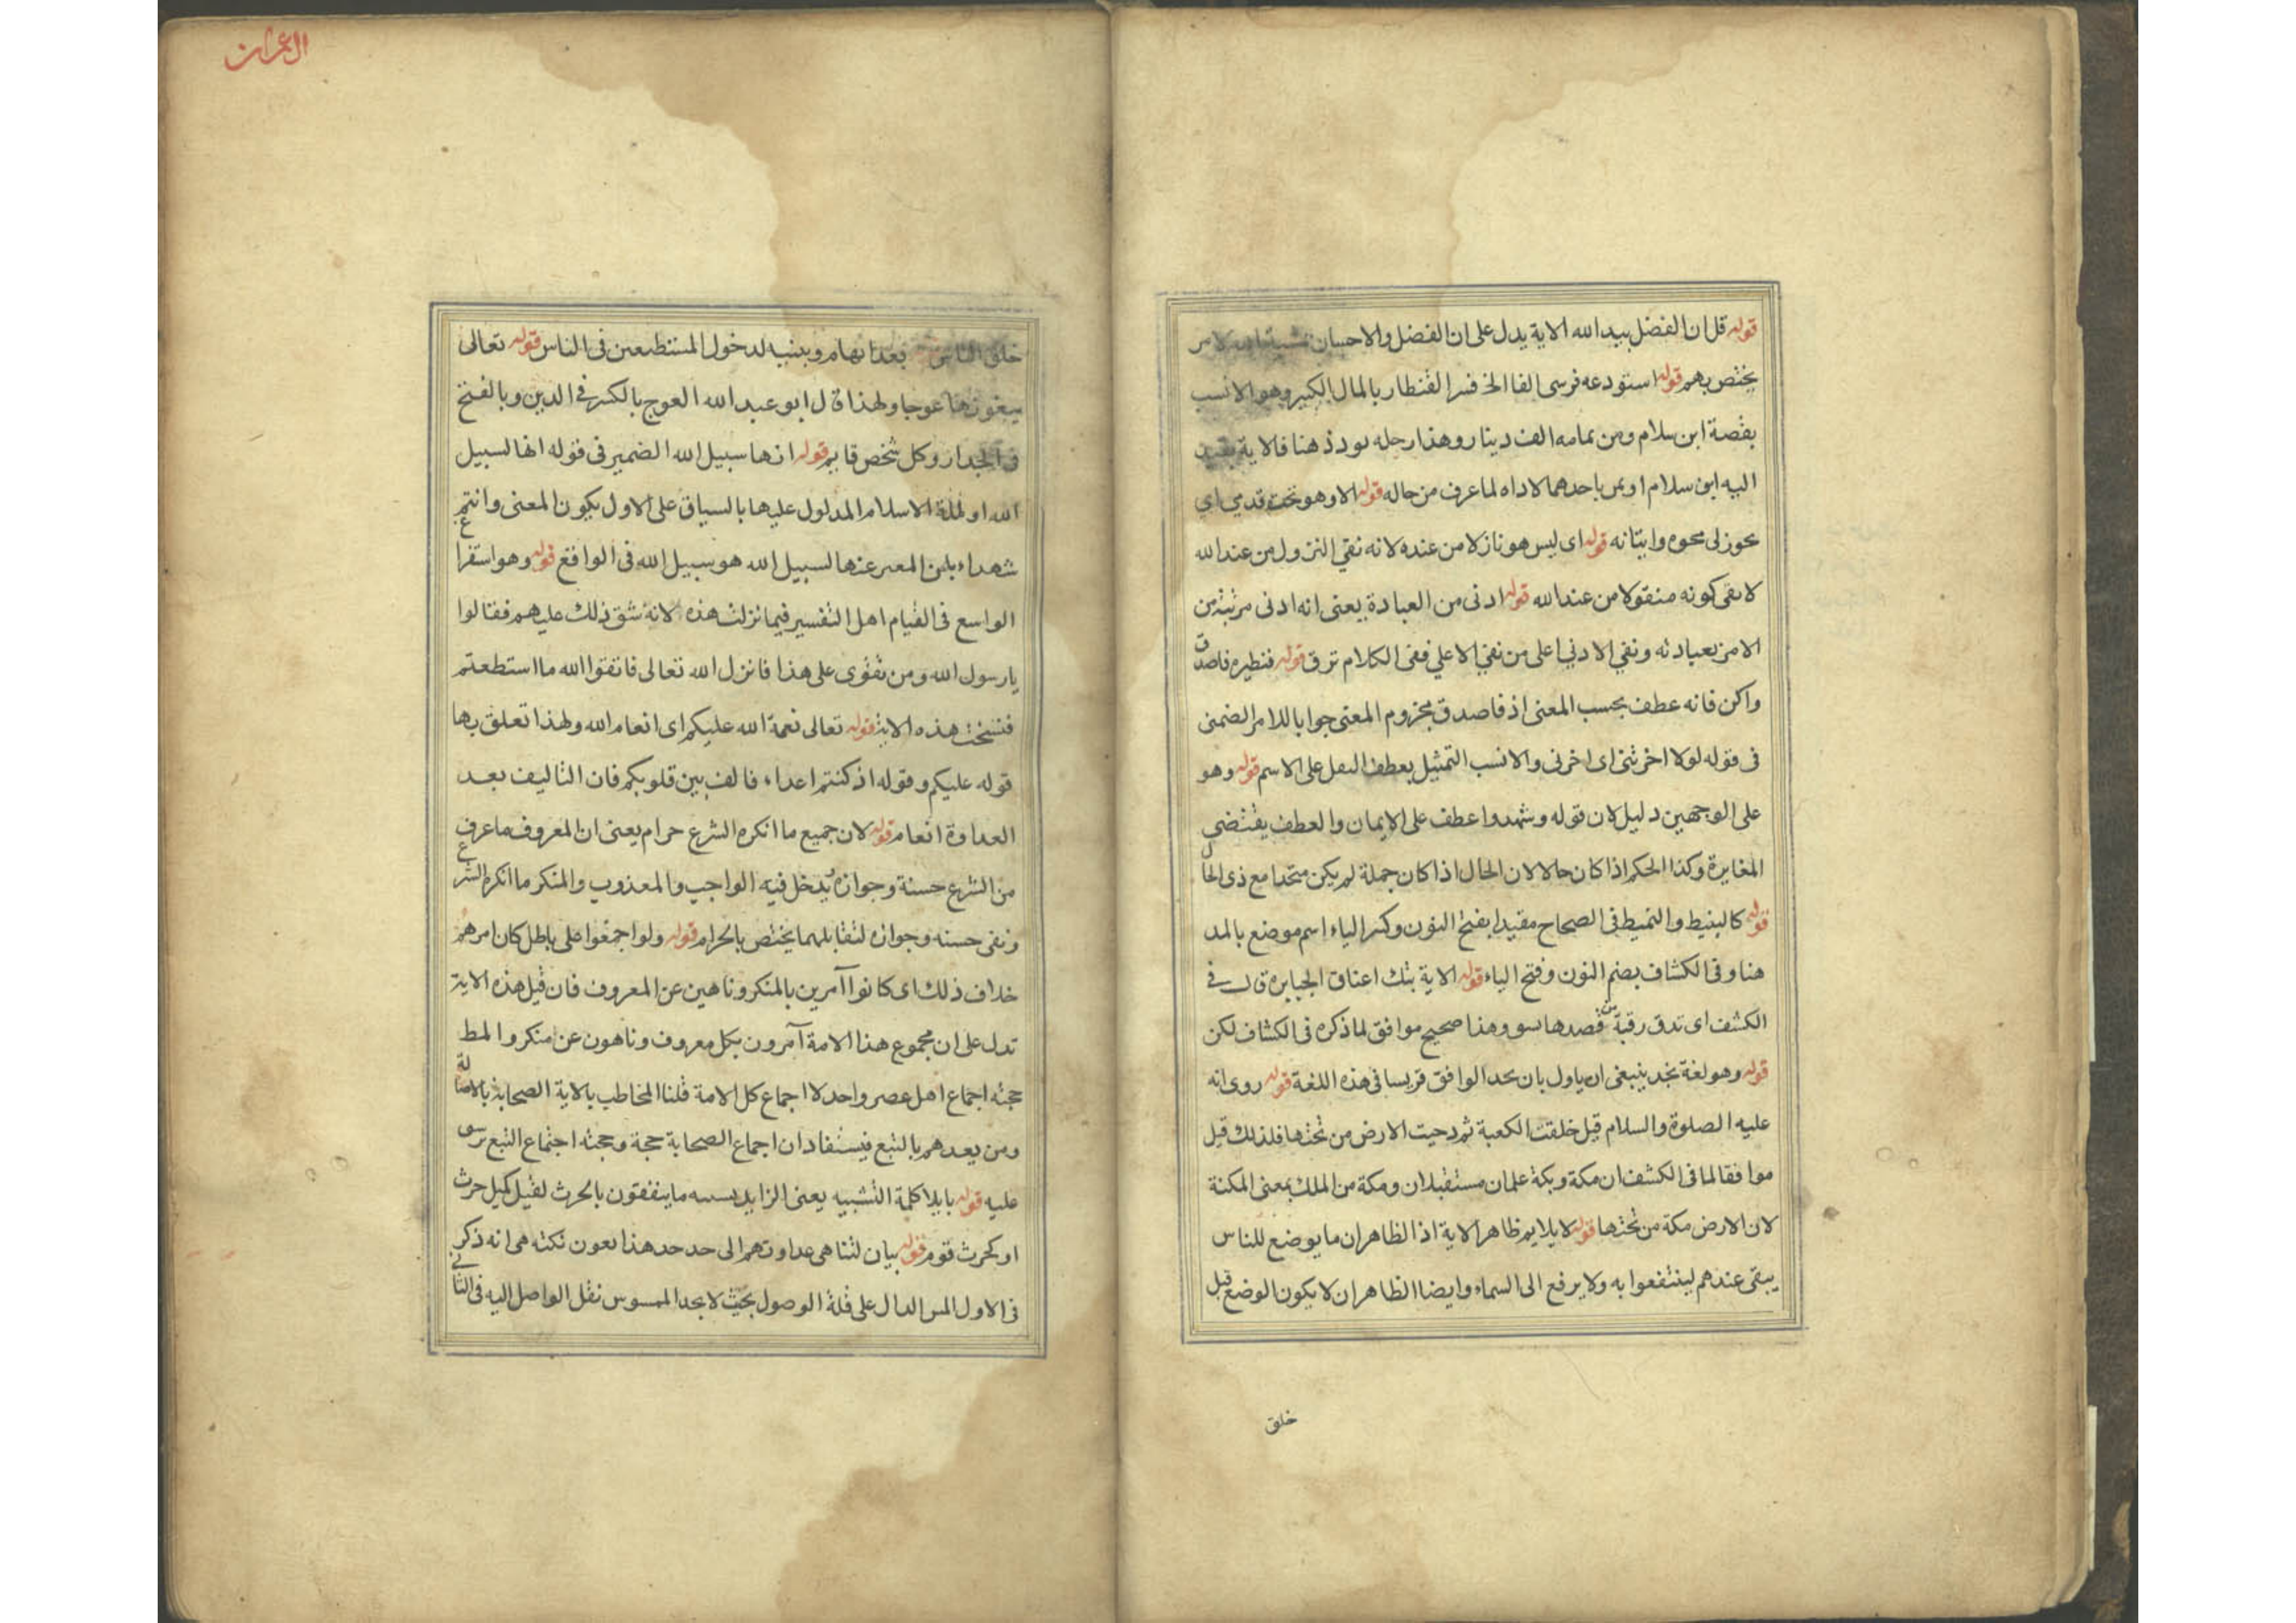 قوله قل ان الفضل بيد الله الاية يدل على ان الفضل والاحسان لامر
يختص بهم قوله استودعه قرشى الفا الخ فسر القنطار بالمال الكبير وهو الانسب
بقصة ابن سلام ومن الف دينار وهذا هنا فالاية
اليه ابن سلام او باحدهما لاداه لما عرف من حاله قوله الا وهو تحت قدمي اي
محوه وابتانه قوله اى ليس هو نازلا من عنده لانه نفي النزول من عند الله
لا كونه منقولا من عند الله قوله ادنى من العبادة يعنى انه ادنى مرتبة من
الامر بعبادته ونفي الادني اعلى من نفي الاعلي ففى الكلام ترق قوله فنظيره فاصدق
واكن فانه عطف بحسب المعنى اذ فاصدق مجزوم المعنى جوابا للامر الضمنى
فى قوله لولا اخرتنى اى اخرنى والانسب التمثيل بعطف الفعل على الاسم قوله وهو
على الوجهين دليل لان قوله وشهدوا عطف على الايمان والعطف يقتضي
المغايرة وكذا الحكم اذا كان حالا لان الحال اذا كان جملة لم يكن متحدا مع ذى الحال
قوله كالبنيط والنميط فى الصحاح مقيدا بفتح النون وكسر الياء اسم موضع بالمد
هنا وفى الكشاف بضم النون وفتح الياء قوله الاية بتك اعناق الجبابرة قال فى
الكشف اى تدق رقبة من قصدها بسو وهذا صحيح موافق لما ذكره فى الكشاف لكن
قوله وهو لغة نجد ينبغى ان ياول بان الوافق قريسا فى هذه اللغة قوله روى انه
عليه الصلوة والسلام قيل خلقت الكعبة ثم دحيت الارض من تحتها فلذلك قيل
موافقا لما فى الكشف ان مكة وبكة علمان مستقبلان ومكة من الملك بمعنى المكنة
لان الارض مكة من تحتها قوله لا يلايم ظاهر الاية اذ الظاهر ان ما يوضع للناس
يبقى عندهم لينتفعوا به ولا يرفع الى السماء وايضا الظاهر ان لا يكون الوضع قبل
خلق
ال عمران
خلق الناس بعد ابهام وتبنيه لدخول المستطيعين فى الناس قوله تعالى
يبغونها عوجا ولهذا قال ابو عبد الله العوج بالكسر فى الدين وبالفتح
فى الجدار وكل شخص قايم قوله انها سبيل الله الضمير فى قوله انها لسبيل
الله او لملة الاسلام المدلول عليها بالسياق على الاول يكون المعنى وانتم
شهداء بان المعبر عنها لسبيل الله هو سبيل الله فى الواقع قوله وهو استفراغ
الواسع فى القيام اهل التفسير فيما نزلت هذه لانه شق ذلك عليهم فقالوا
يا رسول الله ومن يقوى على هذا فانزل الله تعالى فاتقوا الله ما استطعتم
فنسخت هذه الاية قوله تعالى نعمة الله عليكم اى انعام الله ولهذا تعلق بها
قوله عليكم وقوله اذ كنتم اعداء فالف بين قلوبكم فان التاليف بعد
العداوة انعام قوله لان جميع ما انكره الشرع حرام يعنى ان المعروف ما عرف
من الشرع حسنة وجوازه يدخل فيه الواجب والمعذوب والمنكر ما انكره الشرع
ونفى حسنه وجوازه لتقابلهما يختص بالحرام قوله ولو اجمعوا على باطل كان امرهم
خلاف ذلك اى كانوا آمرين بالمنكر وناهين عن المعروف فان قيل هذه الاية
تدل على ان مجموع هذا الامة آمرون بكل معروف وناهون عن منكر والمط
حجته اجماع اهل عصر واحد لا اجماع كل الامة قلنا المخاطب بالاية الصحابة بالاصالة
ومن بعدهم بالتبع فيستفاد ان اجماع الصحابة حجة وحجته اجتماع التبع
عليه قوله بايلا كلمة التشبيه يعنى الزايد ما ينفقون بالحرث لقيل كمثل حرث
او كحرث قوم قوله بيان لتناهى عداوتهم الى حد حد هذا نكته هى انه ذكر
فى الاول المس الدال على قلة الوصول بحيث لا يجد الممسوس نقل الواصل اليه فى الثانى